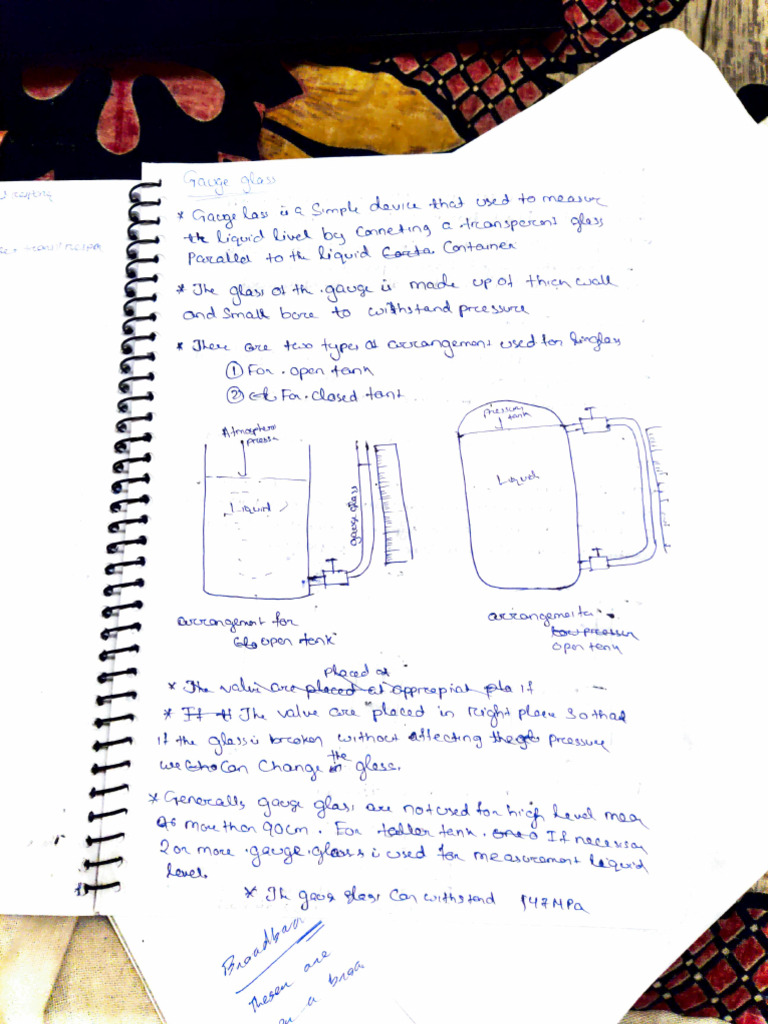 Gauge glass
* Gauge lass is a Simple device that used to measure
the liquid livel by conneting a transparent glass
Parallel to the liquid Conta Container
* The glass of th. gauge is made up of thick wall
and small bore to withstand pressure
* There are two types of arrangement used for
① For . open tank
② For . closed tant
Atmospheric pressu
Liquid
gauge glass
pressure
tank
Liquid
arrangement for
open tank
arrangement for
low pressure
open tank
placed at
* The valve are placed at appropiat pla if
* If th The valve are placed in Right place so that
if the glass is broken without affecting the pressure
we can change the glass.
* Generally gauge glass are not used for high level mea
more than 90cm. For taller tank. If necessary
2 or more . gauge . glass is used for measurement liquid
level.
* Th gaug glass can withstand 147 MPa
Broadban
These are
a broa